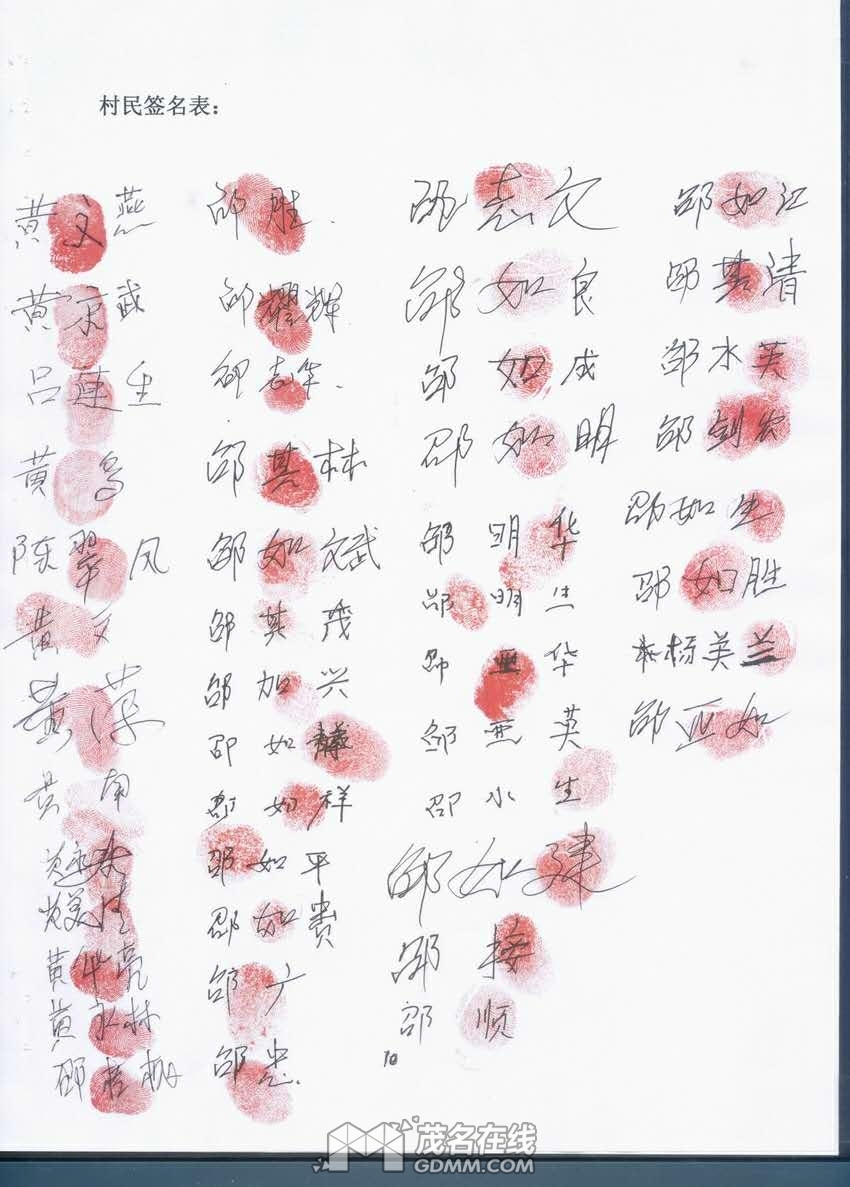 村民签名表：
黄文燕
黄宗武
吕莲生
黄
陈翠凤
黄文
黄
黄南
黄
黄
黄华亮
黄永林
邵桂
邵胜.
邵耀辉
邵志华.
邵其林
邵如斌
邵其茂
邵加兴
邵如
邵如祥
邵如平
邵如贵
邵广
邵忠.
邵志文
邵如良
邵如成
邵如明
邵明华
邵明生
邵亚华
邵亚英
邵水生
邵如建
邵接
邵顺
邵如江
邵其清
邵水英
邵剑农
邵如生
邵如胜
杨美兰
邵亚如
10
茂名在线
GDMM.COM